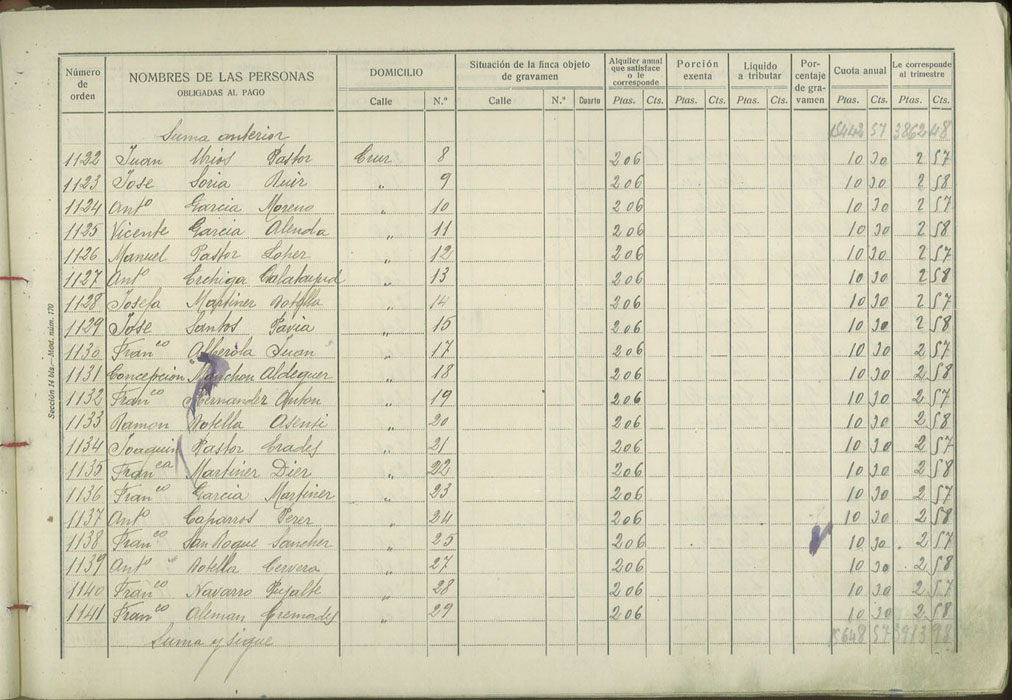 Número de orden | NOMBRES DE LAS PERSONAS OBLIGADAS AL PAGO | DOMICILIO | Situación de la finca objeto de gravamen | Alquiler anual que satisface o le corresponde | Porción exenta | Líquido a tributar | Por-centaje de gra-vamen | Cuota anual | Le corresponde al trimestre
Calle | N.º | Calle | N.º | Cuarto | Ptas. | Cts. | Ptas. | Cts. | Ptas. | Cts. | Ptas. | Cts. | Ptas. | Cts.
Suma anterior 15442 57 3862 48
1122 Juan Mrios Pastor Cruz 8 206 10 30 2 57
1123 Jose Soria Ruiz " 9 206 10 30 2 58
1124 Antº Garcia Moreno " 10 206 10 30 2 57
1125 Vicente Garcia Alenda " 11 206 10 30 2 58
1126 Manuel Pastor Lopez " 12 206 10 30 2 57
1127 Antº Calatayud " 13 206 10 30 2 58
1128 Josefa Martinez Botella " 14 206 10 30 2 57
1129 Jose Santos Pavia " 15 206 10 30 2 58
1130 Franco Alberola Juan " 17 206 10 30 2 57
1131 Concepcion Manchon Aldeguer " 18 206 10 30 2 58
1132 Franco Hernandez Anton " 19 206 10 30 2 57
1133 Ramon Botella Asensi " 20 206 10 30 2 58
1134 Joaquin Pastor Prades " 21 206 10 30 2 57
1135 Franca Martinez Diez " 22 206 10 30 2 58
1136 Franco Garcia Martinez " 23 206 10 30 2 57
1137 Antº Caparros Perez " 24 206 10 30 2 58
1138 Franco San Roque Sanchez " 25 206 10 30 2 57
1139 Antº Botella Cervera " 27 206 10 30 2 58
1140 Franco Navarro Pujalte " 28 206 10 30 2 57
1141 Franco Aleman Cremades " 29 206 10 30 2 58
Suma y sigue 15648 57 3913 98
Sección 14 bis.—Mod. núm. 170